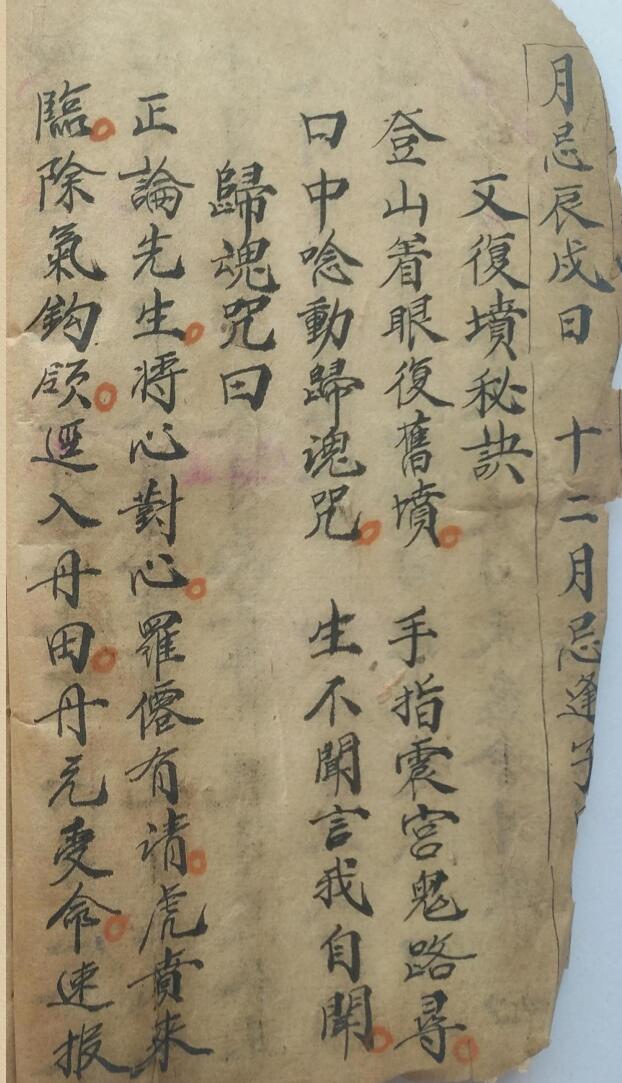 月忌辰戌日　十二月忌逢子
又復墳秘訣
登山着眼復舊墳　手指震宮鬼路尋
口中唸動歸魂咒　生不聞言我自聞
歸魂咒曰
正論先生将心對心羅僊有请虎賁来
臨除氣鈎頎逕入丹田丹元受命速报